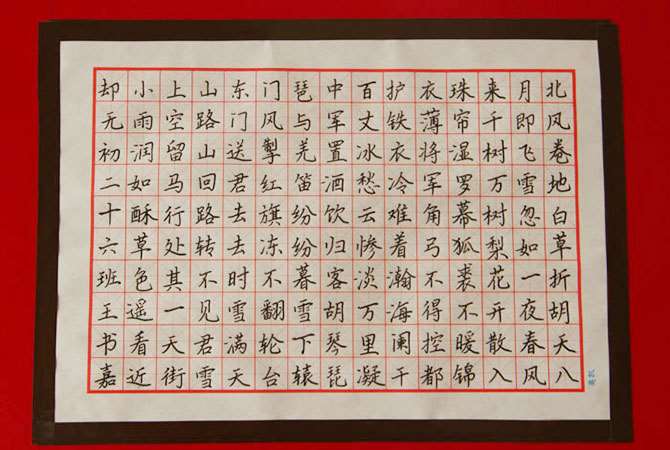 北风卷地白草折胡天八
月即飞雪忽如一夜春风
来千树万树梨花开散入
珠帘湿罗幕狐裘不暖锦
衣薄将军角弓不得控都
护铁衣冷难着瀚海阑干
百丈冰愁云惨淡万里凝
中军置酒饮归客胡琴琵
琶与羌笛纷纷暮雪下辕
门风掣红旗冻不翻轮台
东门送君去去时雪满天
山路山回路转不见君雪
上空留马行处其一天街
小雨润如酥草色遥看近
却无初二十六班王书嘉